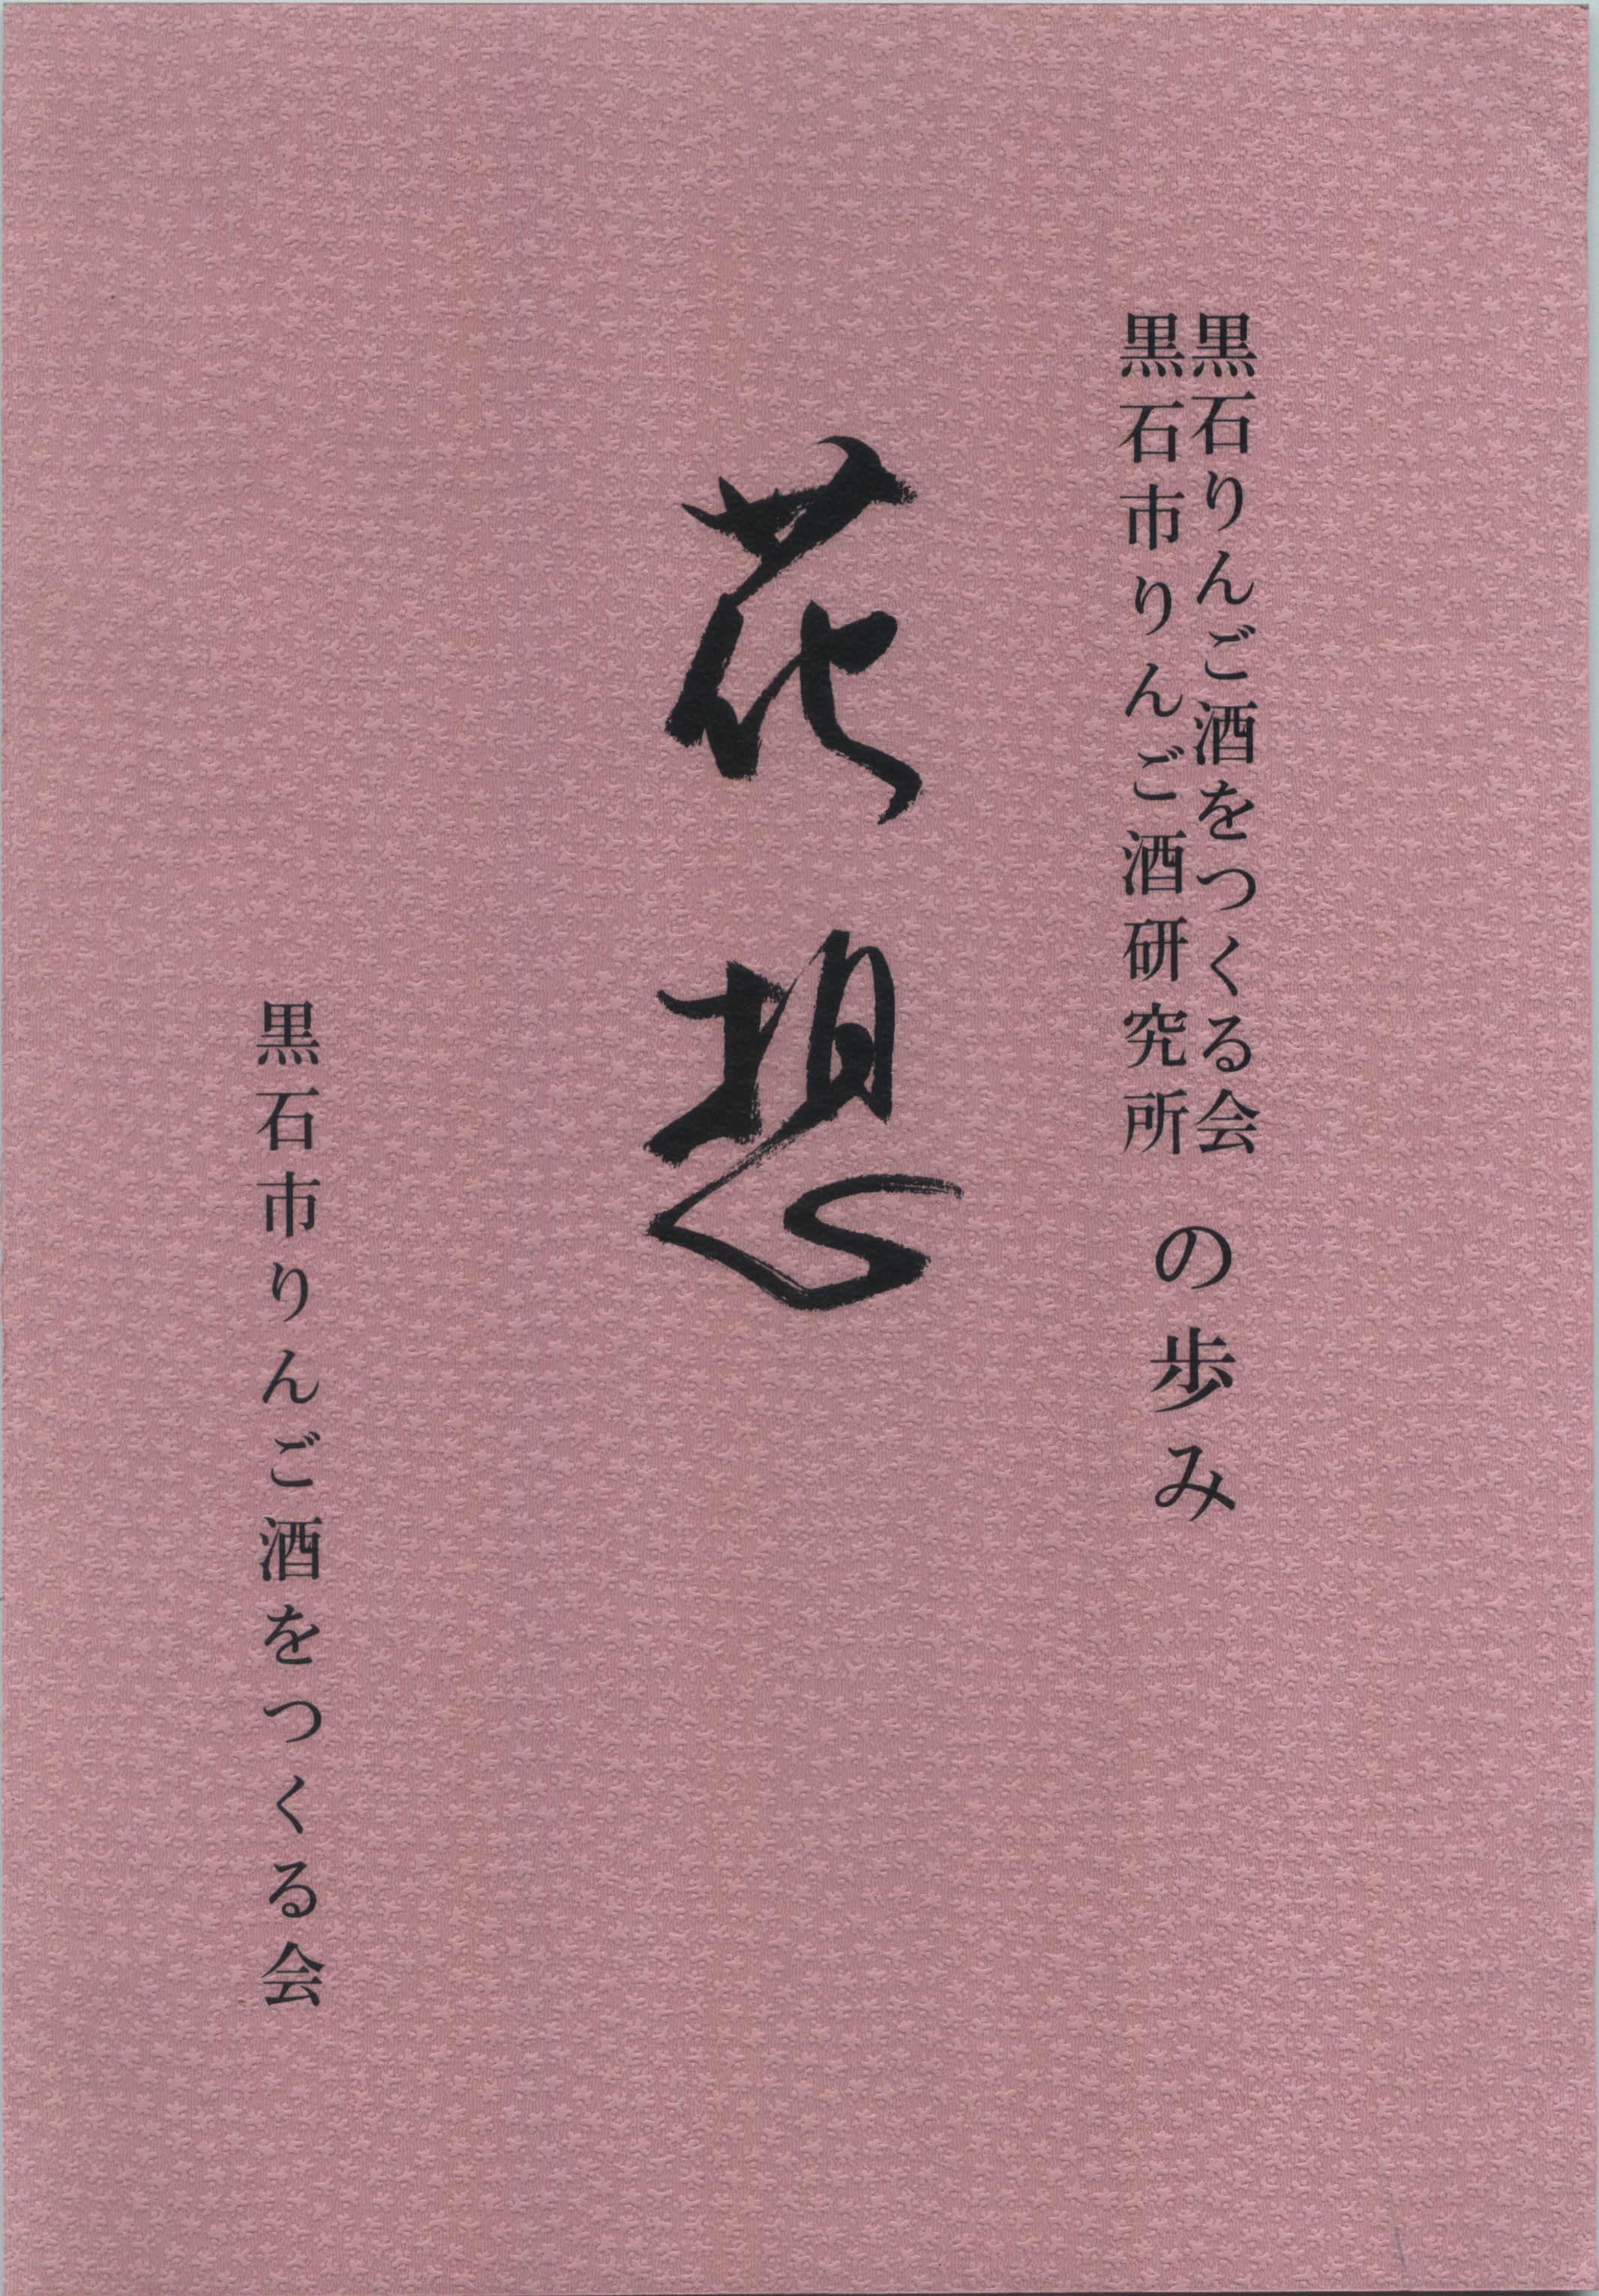 黒石りんご酒をつくる会
黒石市りんご酒研究所
の歩み
花想
黒石市りんご酒をつくる会